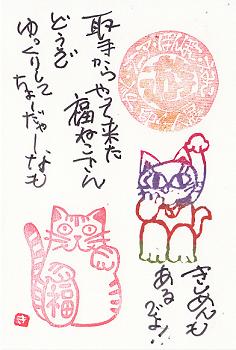 取手からやって来た
福ねこさん
どうぞ
ゆっくりして
ちょーだゃーなも
きしめんも
あるでよ!!
福
き